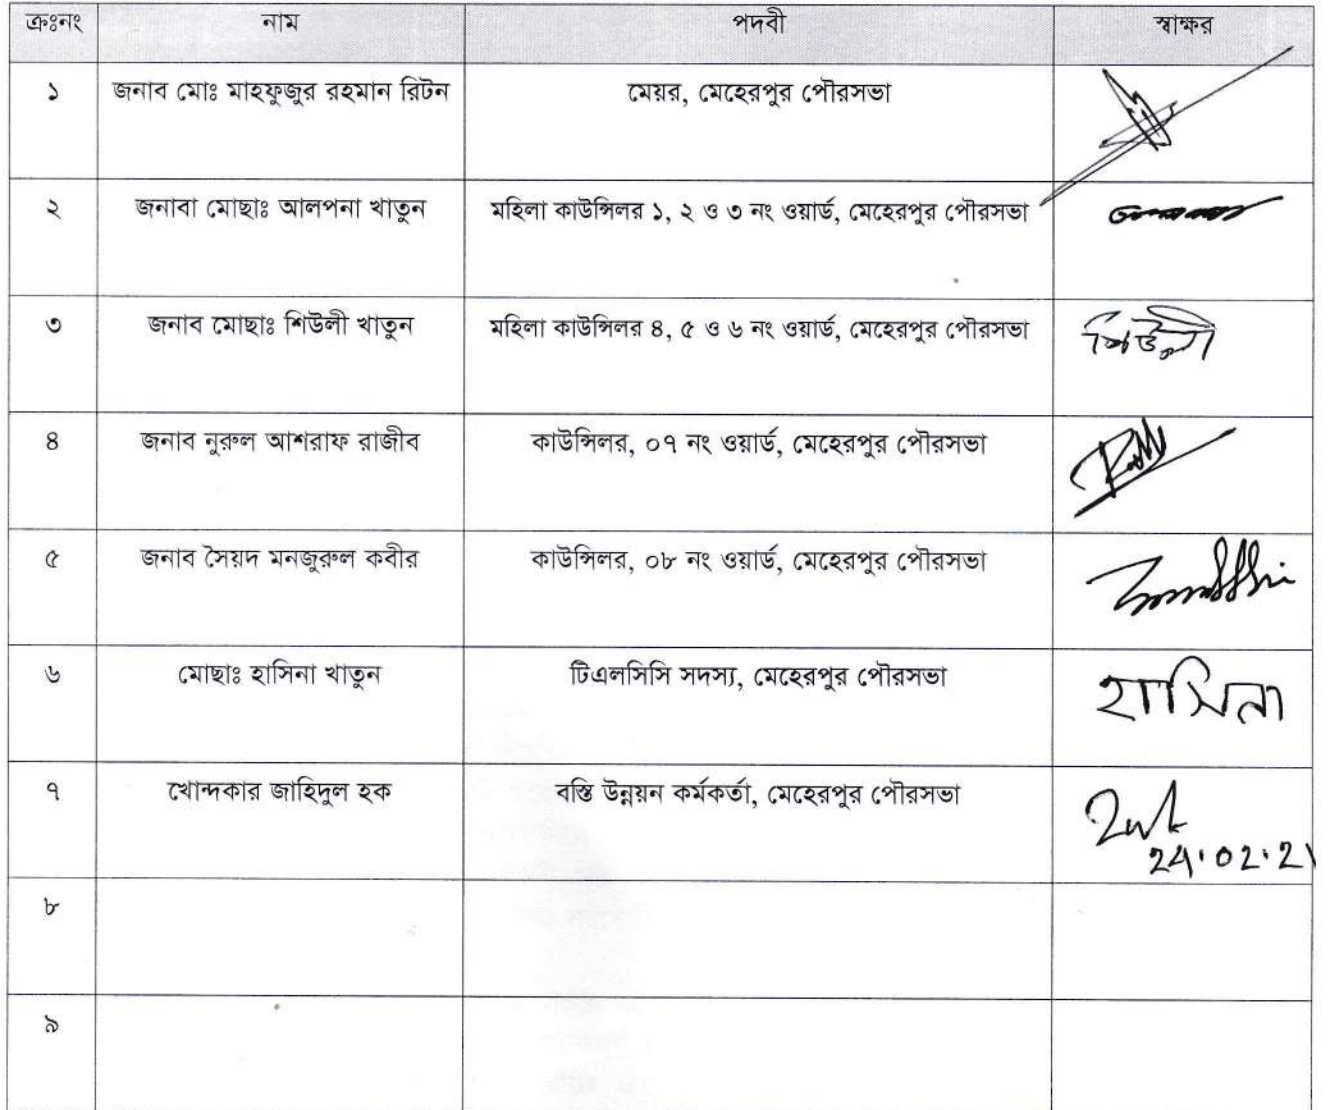 ক্রঃনং নাম পদবী স্বাক্ষর
১ জনাব মোঃ মাহফুজুর রহমান রিটন মেয়র, মেহেরপুর পৌরসভা
২ জনাবা মোছাঃ আলপনা খাতুন মহিলা কাউন্সিলর ১, ২ ও ৩ নং ওয়ার্ড, মেহেরপুর পৌরসভা
৩ জনাব মোছাঃ শিউলী খাতুন মহিলা কাউন্সিলর ৪, ৫ ও ৬ নং ওয়ার্ড, মেহেরপুর পৌরসভা শিউলী
৪ জনাব নুরুল আশরাফ রাজীব কাউন্সিলর, ০৭ নং ওয়ার্ড, মেহেরপুর পৌরসভা
৫ জনাব সৈয়দ মনজুরুল কবীর কাউন্সিলর, ০৮ নং ওয়ার্ড, মেহেরপুর পৌরসভা
৬ মোছাঃ হাসিনা খাতুন টিএলসিসি সদস্য, মেহেরপুর পৌরসভা হাসিনা
৭ খোন্দকার জাহিদুল হক বস্তি উন্নয়ন কর্মকর্তা, মেহেরপুর পৌরসভা
24.02.21
৮
৯